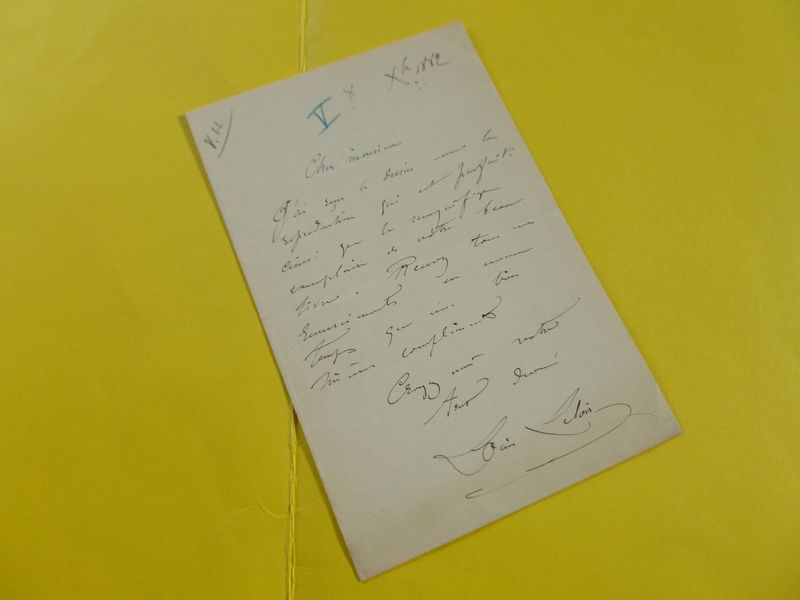 V.12
V 8 Xbre 1882
Cher monsieur
J'ai reçu le dessin avec la
reproduction qui est parfaite
ainsi que le magnifique
exemplaire de votre beau
livre. Recevez tous mes
remerciements en même
temps que mes bien
sincères compliments
Croyez moi votre
tout dévoué
Louis Leloir